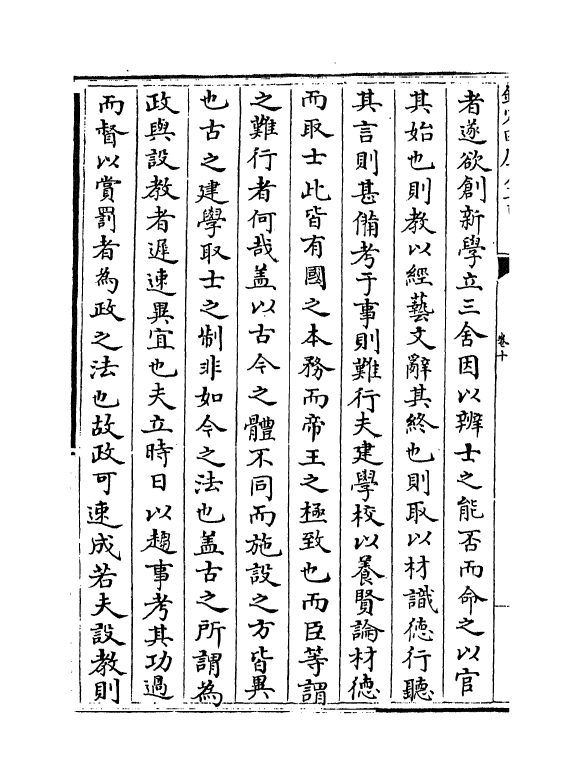 者遂欲創新學立三舍因以辨士之能否而命之以官
其始也則教以經藝文辭其終也則取以材識徳行聽
其言則甚備考于事則難行夫建學校以養賢論材徳
而取士此皆有國之本務而帝王之極致也而臣等謂
之難行者何哉盖以古今之體不同而施設之方皆異
也古之建學取士之制非如今之法也盖古之所謂為
政與設教者遲速異宜也夫立時日以趨事考其功過
而督以賞罰者為政之法也故政可速成若夫設教則
卷十